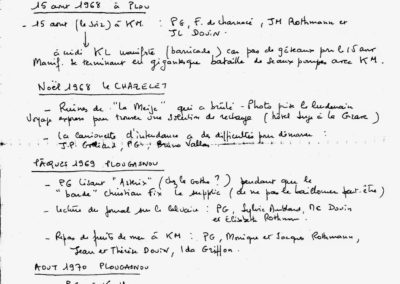 15 août 1968 à PLOU
- 15 août (le soir) à KM : PG, F. de charnacé, JM Rothmann et
JL DOUIN
à midi KL manifeste (barricade) car pas de gâteaux pour le 15 août
Manif. se terminant en gigantesque bataille de seaux pompes avec KM.
NOËL 1968 LE CHAZELET
- Ruines de "La Meije" qui a brûlé - Photo prise le lendemain
Voyage express pour trouver une solution de rechange (hôtel à la Grave)
- La camionnette d'intendance a des difficultés pour démarrer :
J.P. PG, Bruno Vallas
PÂQUES 1969 PLOUGASNOU
- PG lisant "Astérix" (chez les Goths ?) pendant que la
"bande" christian Fix le supplie (de ne pas le baillonner peut-être)
- Lecture du journal sur le calvaire : PG, Sylvie, MC Douin
et Elisabeth Rothmann.
- Repas de fruits de mer à KM : PG, Monique et Jacques Rothmann,
Jean et Thérèse DOUIN, Ida Griffon.
AOUT 1970 PLOUGASNOU